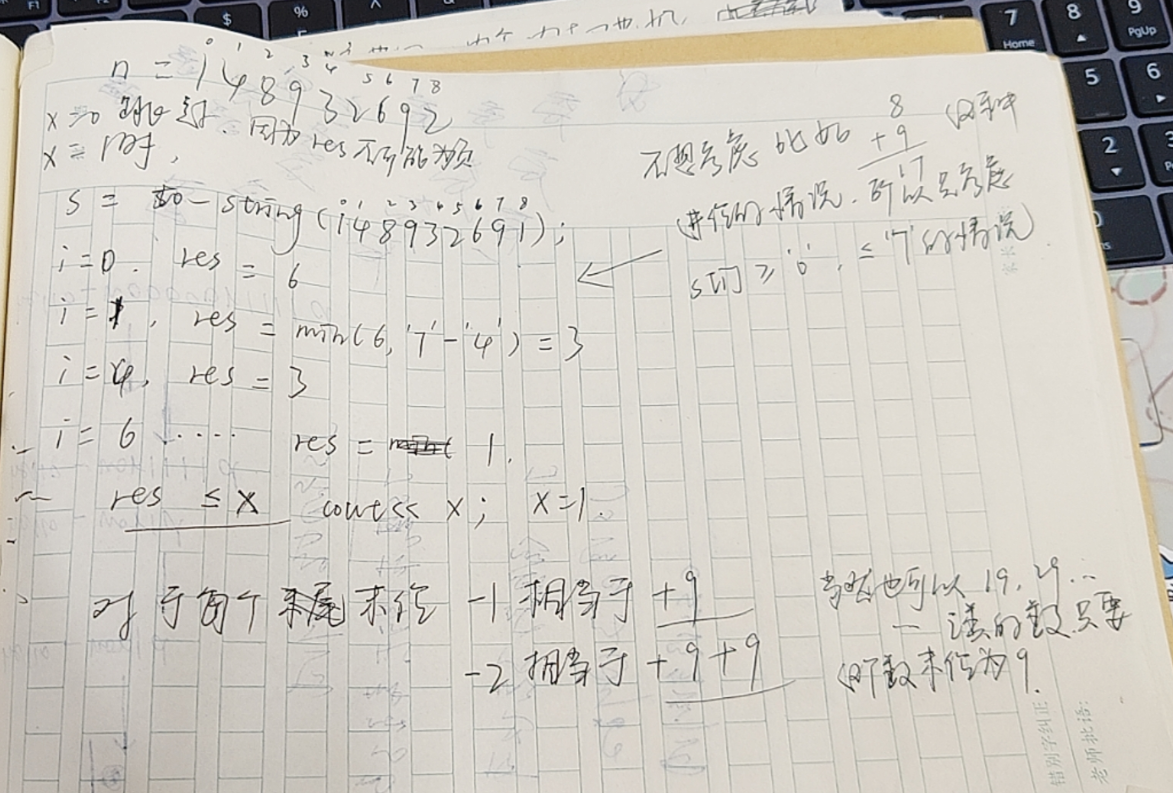 n = 148932692
0 1 2 3 4 5 6 7 8
x=0 时
x = 1时，
因为 res 不可能为负
s = to-string(148932691);
0 1 2 3 4 5 6 7 8
i=0. res = 6
i=1, res = min(6, '7'-'4') = 3
i=4, res = 3
i=6 ···· res = 1.
res ≤ x cout<< x; x=1.
不想考虑 比如 8 +9 17 这种
进位的情况. 所以只考虑
s[i] ≥ '0', ≤ '7' 的情况
对于每个末尾末位 -1 相当于 +9
-2 相当于 +9+9
当然也可以 19, 29..
一类的数,只要
这个数末位为9.
7 Home
8
9 PgUp
5
6
2
3
$
%
错别字纠正
老师批语: